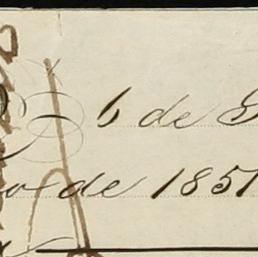 6 de
o de 1851